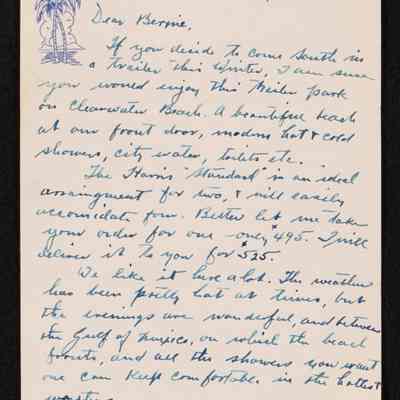 Dear Bernie,
If you decide to come South in
a trailer this Winter, I am sure
you would enjoy this trailer park
on Clearwater Beach. A beautiful beach
at our front door, modern hot & cold
showers, city water, toilets etc.
The Harris "Standard" is an ideal
arrangment for two, & will easily
accomidate four. Better let me take
your order for one - only $495. I will
deliver it to you for $525.
We like it here a lot. The weather
has been pretty hot at times, but
the evenings are wonderful, and between
the Gulf of Mexico, on which the beach
fronts, and all the showers you want
one can keep comfortable in the hottest